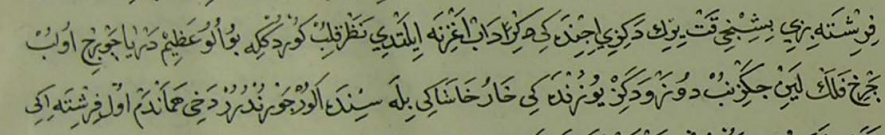 فرشته بزي بشنجي قت يرك دكزي اجنده كي كرداب اغزنه ايلتدي نظر قلب كوردكله بو الو عظيم دريا جوبرج اولب
جرخ فلك لين جكزنب دونر و دكز يوزنده كي خار خاشاكي بله سنده الور جورندرر دخي هماندم اول فرشته اكي